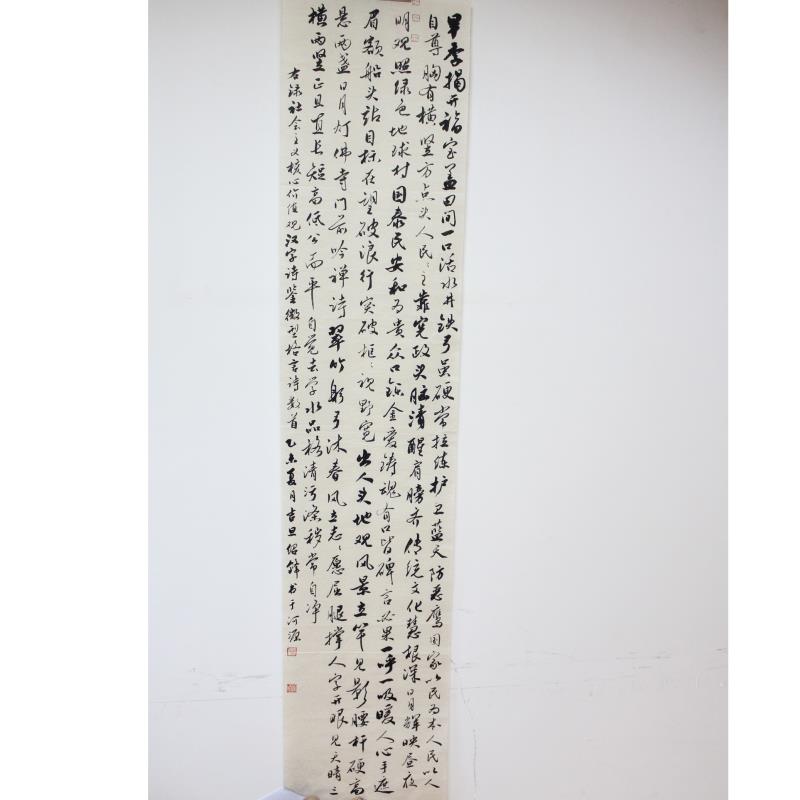 旱季揭开福宝盖田间一口活水井铁弓虽硬常拉练护卫蓝天防恶鹰国家以民为本人民以人
自尊胸有横竖方点头人民々主靠宪政头脑清醒肩膀齐传统文化慧根深日月辉映昼夜
明观照绿色地球村国泰民安和为贵众口铄金爱铸魂有口皆碑言必果一呼一吸暖人心手遮
眉额船头站目标在望破浪行突破框々视野宽出人头地观风景立竿见影腰杆硬高
悬两盏日月灯佛寺门前吟禅诗翠竹躬弓沐春风立志々愿屈腿撑人字开眼见天晴三
横两竖正且直长短高低公而平自觉去学水品格清污涤秽常自净
右录社会主义核心价值观汉字诗鉴微型格言诗数首乙未夏月吉旦书于河源